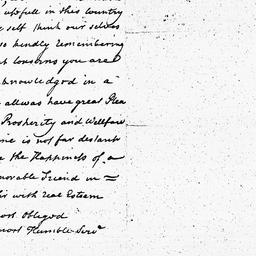 usefull in this Country
self think our selves
so kindly remembering
t conserns you are
cknowledged in a
allwas have great Plea
Prosperity and Wellfare
me is not far destant
e the Happiness of a
norable Friend in =
Sir with real Esteem
most Obleged
most Humble Servt